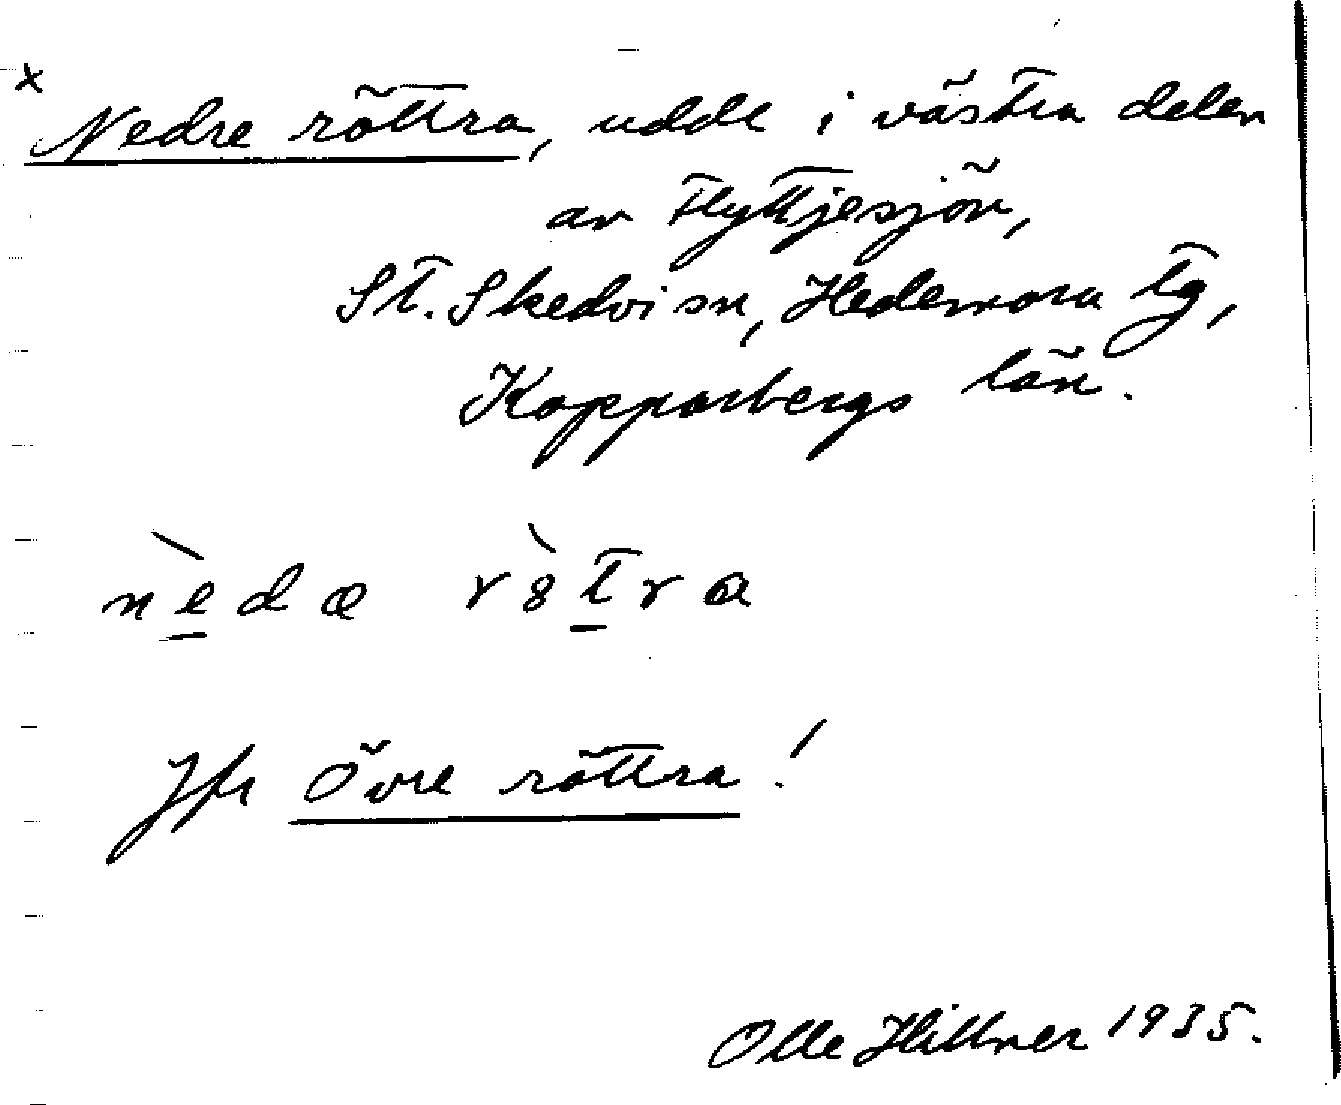 x
Nedre röttra, udde i västra delen
av Flyttjesjön,
St. Skedvi sn, Hedemora tg,
Kopparbergs län.
nèdæ rò̀tra
Jfr Övre röttra!
Olle Hillner 1935.